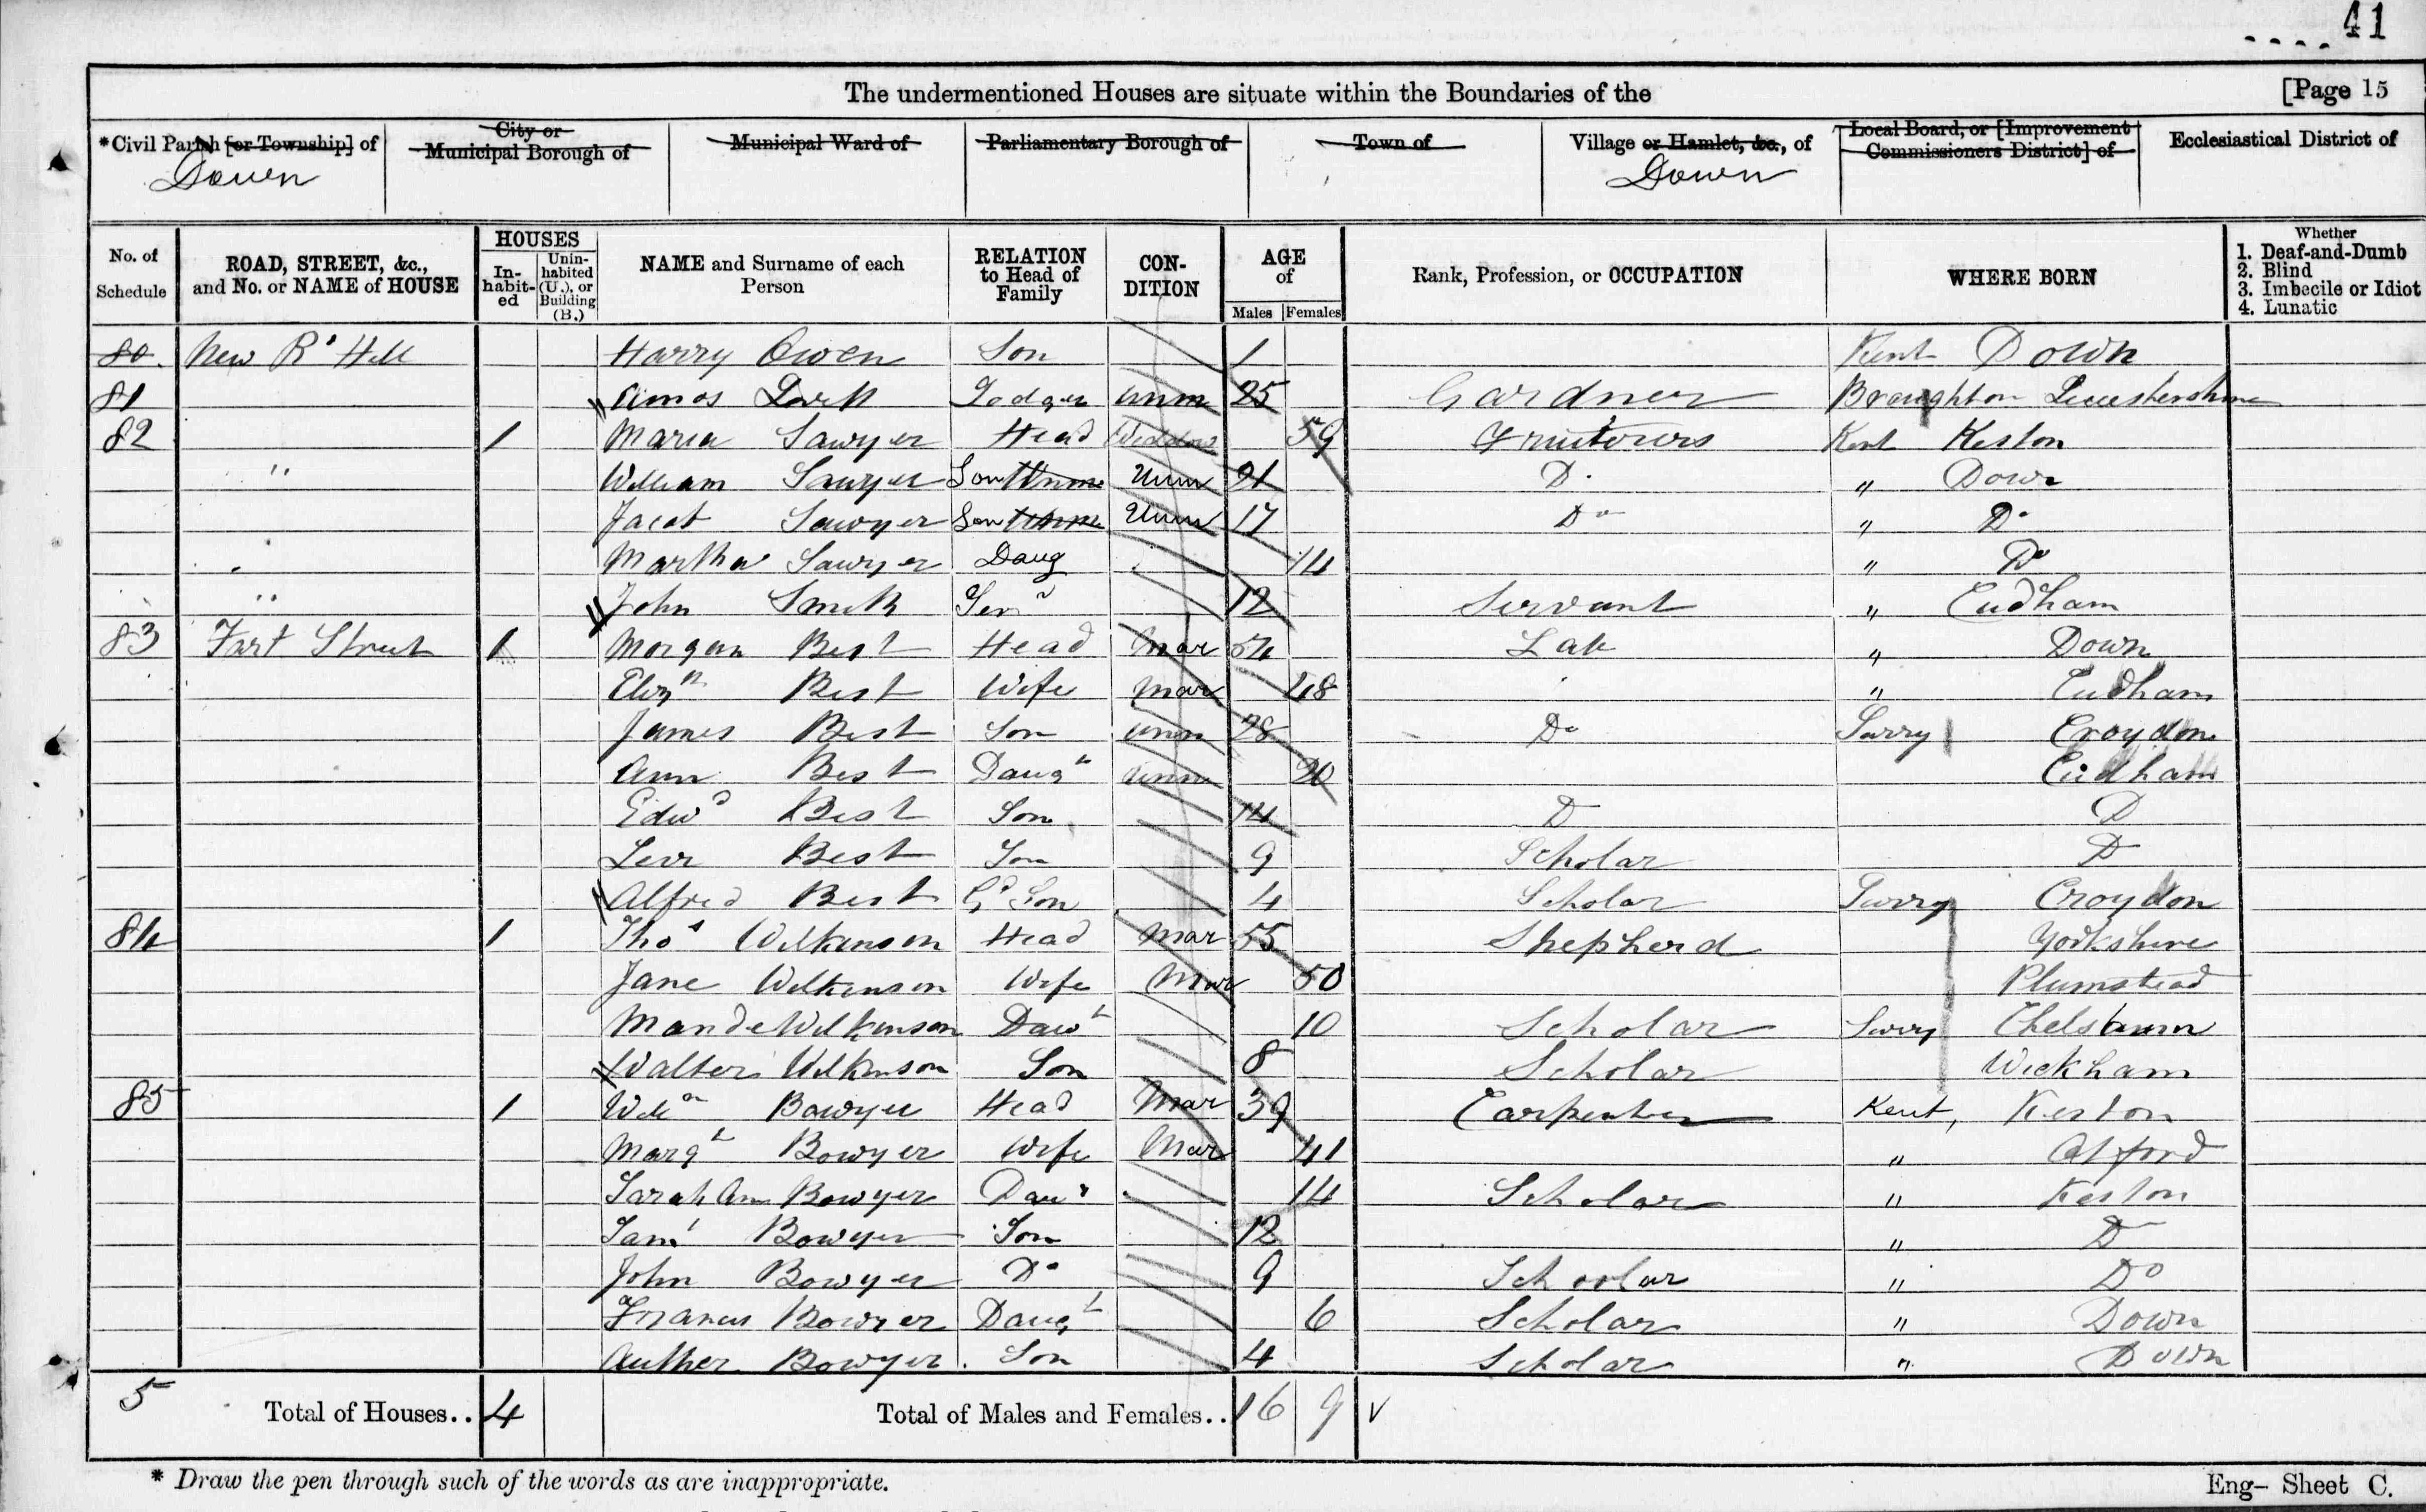 41
The undermentioned Houses are situate within the Boundaries of the [Page 15
*Civil Parish [or Township] of Down
City or Municipal Borough of
Municipal Ward of
Parliamentary Borough of
Town of
Village or Hamlet, &c., of Down
Local Board, or [Improvement Commissioners District] of
Ecclesiastical District of
No. of Schedule
ROAD, STREET, &c., and No. or NAME of HOUSE
HOUSES
In-habit-ed
Unin-habited (U.), or Building (B.)
NAME and Surname of each Person
RELATION to Head of Family
CON-DITION
AGE of
Males Females
Rank, Profession, or OCCUPATION
WHERE BORN
Whether
1. Deaf-and-Dumb
2. Blind
3. Imbecile or Idiot
4. Lunatic
80 New Rd Hill Harry Owen Son 1 Kent Down
81 Amos Lodger Unm 25 Gardner Broughton Leicestershire
82 1 Maria Sawyer Head Widdow 59 Kent Keston
" William Sawyer Son Unm Unm 21 Do " Down
Jacob Sawyer Son Unm Unm 17 Do " Do
" Martha Sawyer Daug 14 " Do
" John Smith Serv 12 Servant " Cudham
83 Street 1 Morgan Best Head Mar 54 Lab " Down
Elizth Best Wife Mar 48 " Cudham
James Best Son Unm 28 Do Surry Croydon
Ann Best Daugh Unm 20 Cudham
Edwd Best Son 14 D D
Levi Best Son 9 Scholar D
Alfred Best Gd Son 4 Scholar Surry Croydon
84 1 Thos Wilkinson Head Mar 55 Shepherd Yorkshire
Jane Wilkinson Wife Mar 50 Plumstead
Wilkinson Daut 10 Scholar Surry Chelsham
Walter Wilkinson Son 8 Scholar Wickham
85 1 Willm Bowyer Head Mar 39 Carpenter Kent, Keston
Margt Bowyer Wife Mar 41 " Otford
Sarah Ann Bowyer Daur 14 Scholar " Keston
Saml Bowyer Son 12 " D
John Bowyer Do 9 Schoolar " Do
Frances Bowyer Daugt 6 Scholar " Down
Auther Bowyer Son 4 Scholar " Down
5 Total of Houses.. 4 Total of Males and Females.. 16 9
* Draw the pen through such of the words as are inappropriate.
Eng- Sheet C.